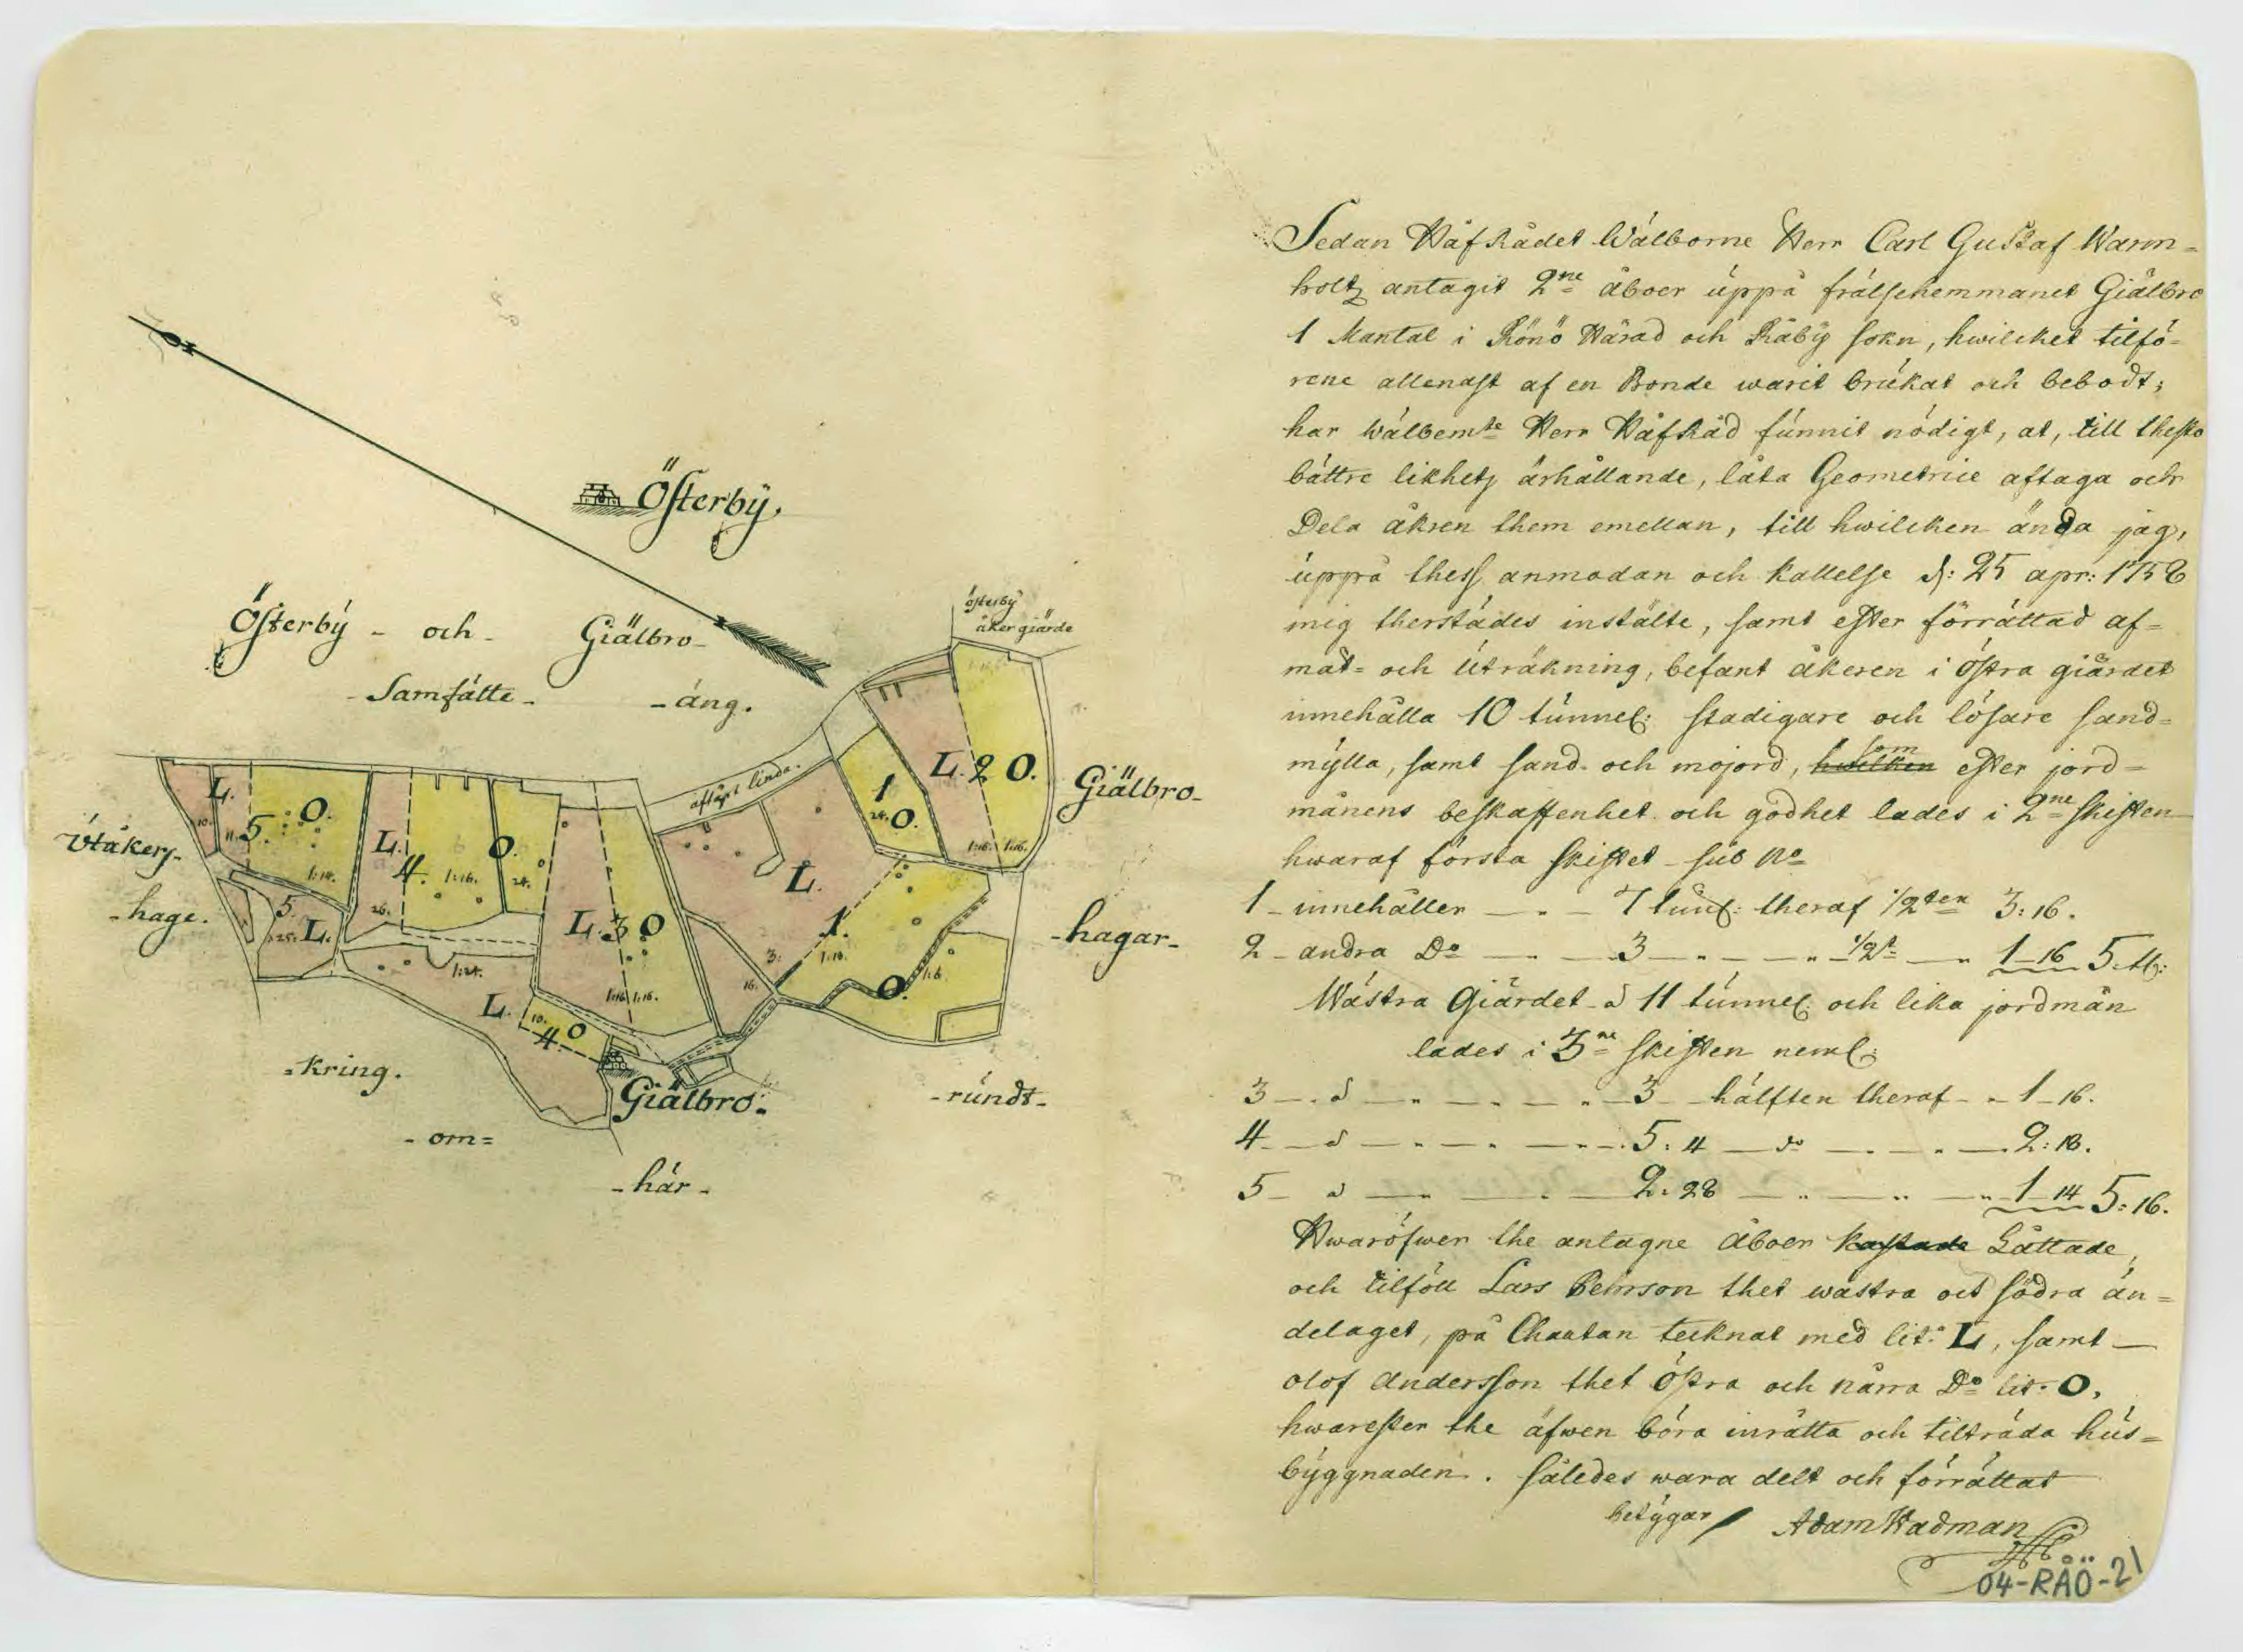 Österbÿ.
österbÿ
åker giärde
Österbÿ - och - Giälbro -
- Samfälte - - äng.
aftagt linda.
L. 5. O. L. 4. O. L. 3 O L. 1. O. 1 O. L. 2 O.
10. 11. 1:14. 26. 1:16. 24. 1:16. 1:16. 3. 16. 1:6. 24. 1:16. 1:16.
5. L. 25. 1:24. L. 10. 4. O
Utåkers-
-hage.
Giälbro-
-hagar-
-rundt-
Giälbro.
-kring.
-om=
-här-
Sedan HåfRådet Wälborne Herr Carl Gustaf Warm=
holtz antagit 2ne åboer uppå frälsehemmanet Giälbro
1 Mantal i Rönö Härad och Råbÿ sokn, hwilcket tilfö=
rene allenast af en Bonde warit brukat och bebodt;
har wälbemte Herr HåfRåd funnit nödigt, at, till thesto
bättre likhetz ärhållande, låta Geometrice aftaga och
Dela åkren them emellan, till hwilcken ända jag,
uppå thess anmodan och kallelse d: 25 apr: 1758
mig therstädes instälte, samt efter förrättad af=
mät= och uträkning, befant åkeren i östra giärdet
innehålla 10 tunnel: stadigare och lösare sand=
mylla, samt sand- och mojord, hwilken som efter jord=
månens beskaffenhet och godhet lades i 2ne Skiften
hwaraf första skiftet sub No
1 - innehåller — 7 tunl: theraf 1/2ten 3:16.
2 - andra Do — 3 — 1/2t — 1-16 5. tl:
Wästra Giärdet å 11 tunnel: och lika jordmån
lades i 3ne skiften neml:
3 — å — 3 hälften theraf — 1-16.
4 — å — 5:4 — do — 2:18.
5 — å — 2:28 — 1-14 5:16.
Hwaröfwer the antagne Åboer kastade Låttade,
och tilföll Lars Pehrson thet wästra och södra än=
delaget, på Chartan tecknat med lit: L, samt —
olof Andersson thet östra och närra Do lit: O,
hwarefter the äfwen böra inrätta och tilträda hus=
byggnaden. således wara delt och förrättat
betÿgar / Adam Wadman
04-RÅÖ-21